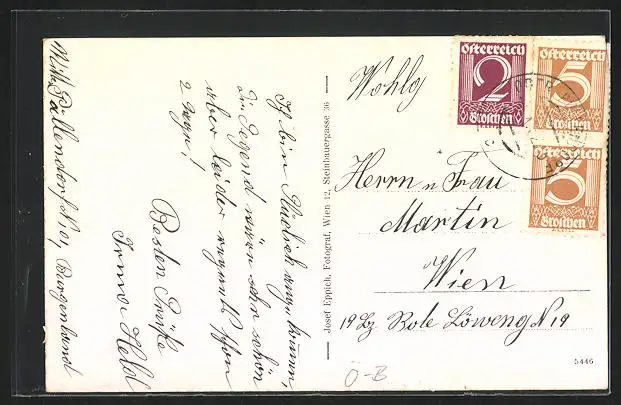 Ich bin glücklich angekommen,
die Gegend wäre sehr schön
aber leider regnet schon
2 Tage!
Besten Grüße
Irma Held
Burgenland
Josef Eppich, Fotograf, Wien 12, Steinbauergasse 36
Wohlg
Herrn u Frau
Martin
Wien
19 Bz Rote Löweng N 19
Österreich
2
Groschen
Österreich
5
Groschen
Österreich
5
Groschen
5446
Ö-B